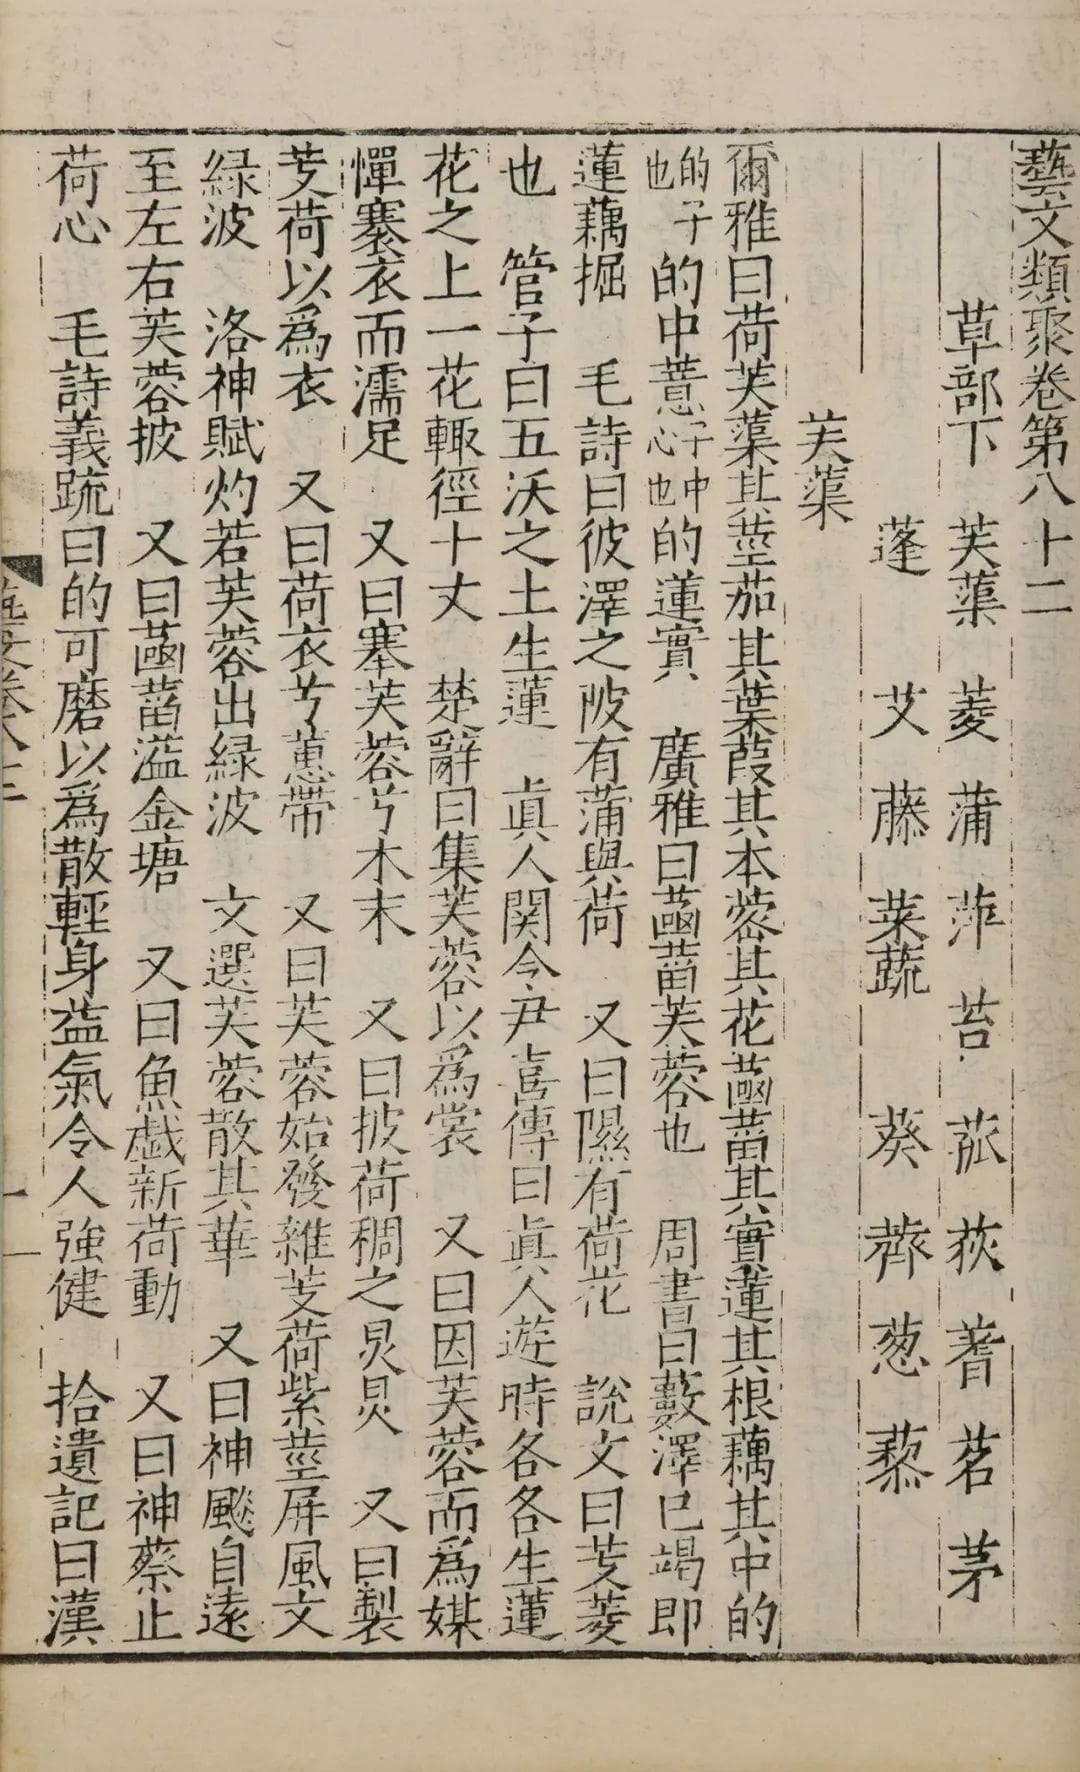 藝文類聚卷第八十二
草部下　芙蕖　菱　蒲　萍　苔　菰　荻　蓍　茗　茅
蓬　艾　藤　菜蔬　葵　薺　葱　藜
芙蕖
爾雅曰荷芙蕖其莖茄其葉葭其本蔤其花菡萏其實蓮其根藕其中的
的子也的中薏子中心也的蓮實　廣雅曰菡萏芙蓉也　周書曰藪澤已竭即
蓮藕掘　毛詩曰彼澤之陂有蒲與荷　又曰隰有荷花　說文曰芰菱
也　管子曰五沃之土生蓮　眞人関令尹喜傳曰眞人遊時各各生蓮
花之上一花輙徑十丈　楚辭曰集芙蓉以爲裳　又曰因芙蓉而爲媒
憚褰衣而濡足　又曰搴芙蓉兮木末　又曰披荷稠之炅炅　又曰製
芰荷以爲衣　又曰荷衣兮蕙帶　又曰芙蓉始發雜芰荷紫莖屏風文
緑波　洛神賦灼若芙蓉出緑波　文選芙蓉散其華　又曰神飈自遠
至左右芙蓉披　又曰菡萏溢金塘　又曰魚戯新荷動　又曰神蔡止
荷心　毛詩義疏曰的可磨以爲散輕身益氣令人強健　拾遺記曰漢